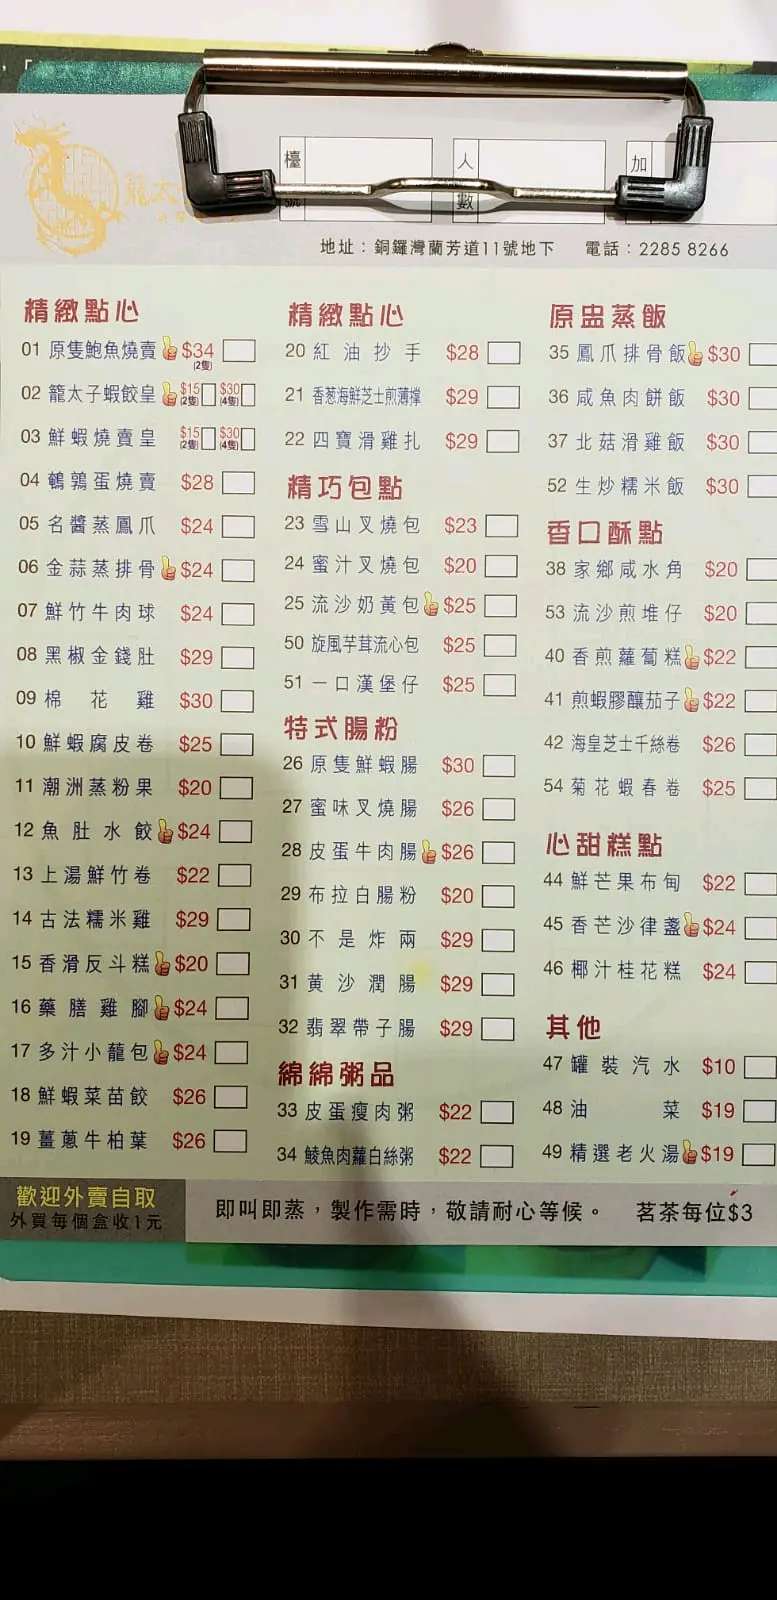 龍太
檯號
人數
加
地址：銅鑼灣蘭芳道11號地下 電話：2285 8266
精緻點心
01 原隻鮑魚燒賣 $34 (2隻)
02 籠太子蝦餃皇 $15 (2隻) $30 (4隻)
03 鮮蝦燒賣皇 $15 (2隻) $30 (4隻)
04 鵪鶉蛋燒賣 $28
05 名醬蒸鳳爪 $24
06 金蒜蒸排骨 $24
07 鮮竹牛肉球 $24
08 黑椒金錢肚 $29
09 棉花雞 $30
10 鮮蝦腐皮卷 $25
11 潮洲蒸粉果 $20
12 魚肚水餃 $24
13 上湯鮮竹卷 $22
14 古法糯米雞 $29
15 香滑反斗糕 $20
16 藥膳雞腳 $24
17 多汁小龍包 $24
18 鮮蝦菜苗餃 $26
19 薑蔥牛柏葉 $26
精緻點心
20 紅油抄手 $28
21 香葱海鮮芝士煎薄撐 $29
22 四寶滑雞扎 $29
精巧包點
23 雪山叉燒包 $23
24 蜜汁叉燒包 $20
25 流沙奶黃包 $25
50 旋風芋茸流心包 $25
51 一口漢堡仔 $25
特式腸粉
26 原隻鮮蝦腸 $30
27 蜜味叉燒腸 $26
28 皮蛋牛肉腸 $26
29 布拉白腸粉 $20
30 不是炸兩 $29
31 黄沙潤腸 $29
32 翡翠帶子腸 $29
綿綿粥品
33 皮蛋瘦肉粥 $22
34 鯪魚肉蘿白絲粥 $22
原盅蒸飯
35 鳳爪排骨飯 $30
36 咸魚肉餅飯 $30
37 北菇滑雞飯 $30
52 生炒糯米飯 $30
香口酥點
38 家鄉咸水角 $20
53 流沙煎堆仔 $20
40 香煎蘿蔔糕 $22
41 煎蝦膠釀茄子 $22
42 海皇芝士千絲卷 $26
54 菊花蝦春卷 $25
心甜糕點
44 鮮芒果布甸 $22
45 香芒沙律盞 $24
46 椰汁桂花糕 $24
其他
47 罐裝汽水 $10
48 油菜 $19
49 精選老火湯 $19
歡迎外賣自取
外買每個盒收1元
即叫即蒸，製作需時，敬請耐心等候。 茗茶每位$3